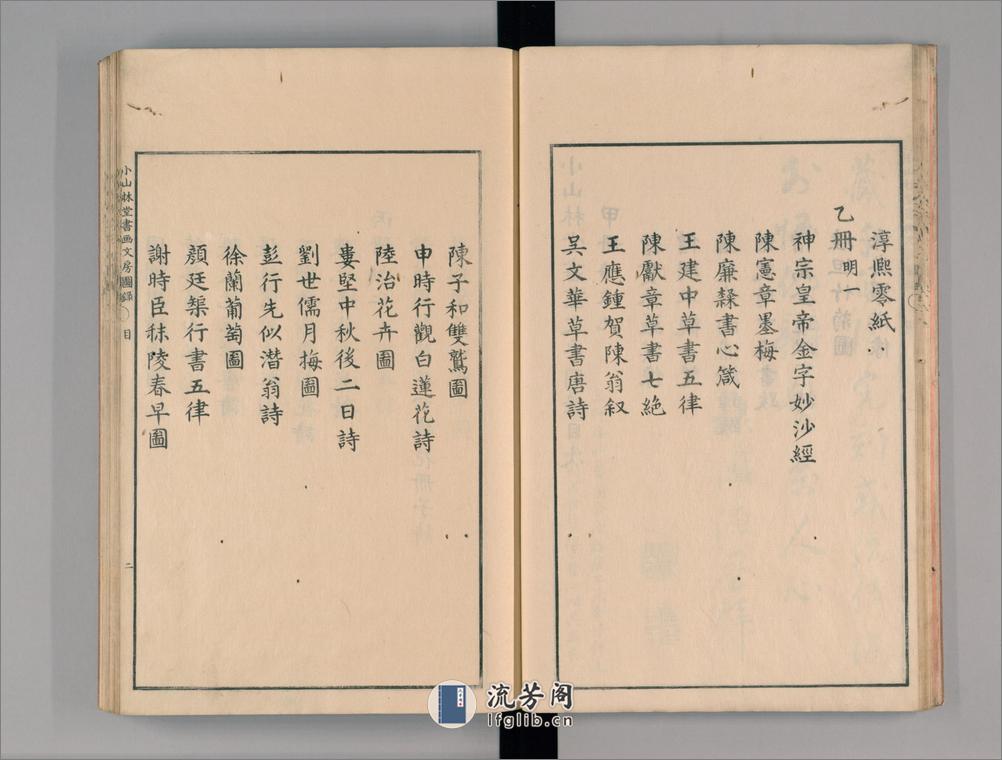 淳熙零紙
乙冊明一
神宗皇帝金字妙沙經
陳憲章墨梅
陳廉隸書心箴
王建中草書五律
陳獻章草書七絕
王應鍾賀陳翁叙
吳文華草書唐詩
陳子和雙鷲圖
申時行觀白蓮花詩
陸治花卉圖
婁堅中秋後二日詩
劉世儒月梅圖
彭行先似潛翁詩
徐蘭葡萄圖
顏廷榘行書五律
謝時臣秣陵春早圖
小山林堂書画文房圖錄
目
二
流芳阁
lfglib.cn